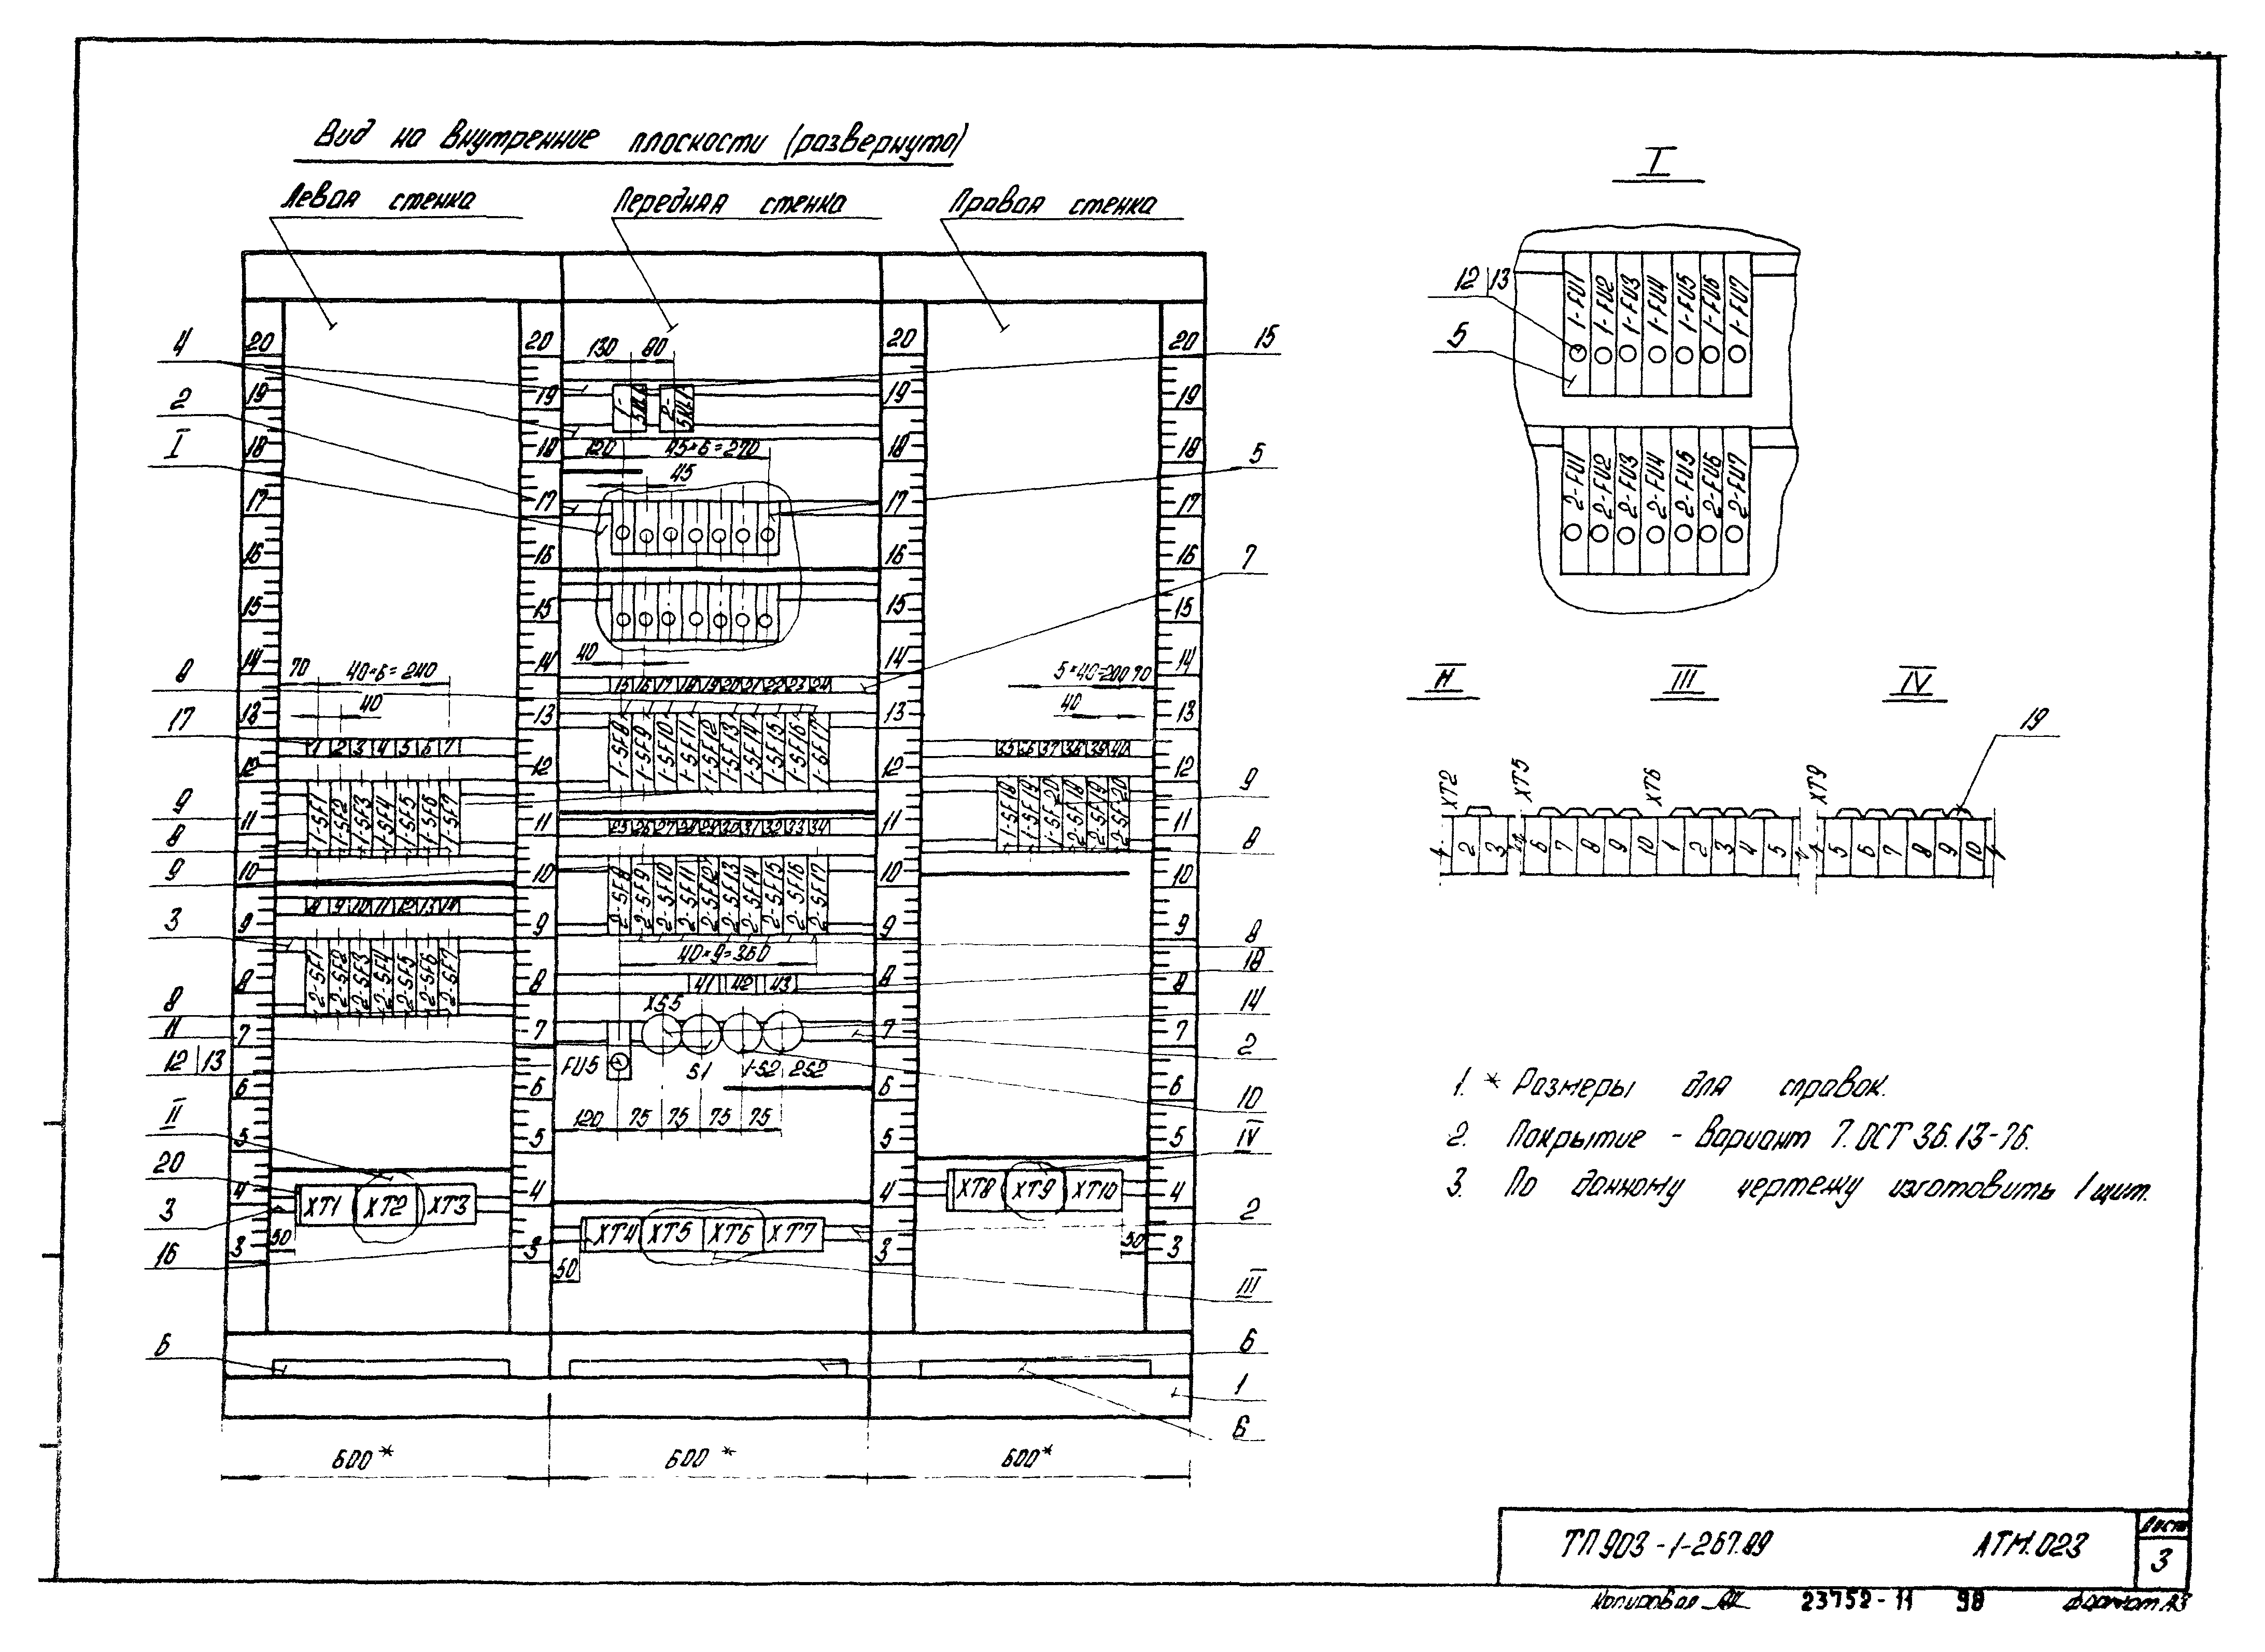 Вид на внутренние плоскости (развернуто)
Левая стенка
Передняя стенка
Правая стенка
I
12 | 13
5
1-FU1 1-FU2 1-FU3 1-FU4 1-FU5 1-FU6 1-FU7
2-FU1 2-FU2 2-FU3 2-FU4 2-FU5 2-FU6 2-FU7
II III IV
19
XT2 XT5 XT6 XT9
1 2 3
6 7 8 9 10 1 2 3 4 5
5 6 7 8 9 10
4
2
I
8
17
9
8
9
3
8
11
12 | 13
II
20
3
16
6
15
5
7
9
8
8
18
14
2
10
IV
2
III
6
1
6
20 19 18 17 16 15 14 13 12 11 10 9 8 7 6 5 4 3
20 19 18 17 16 15 14 13 12 11 10 9 8 7 6 5 4 3
20 19 18 17 16 15 14 13 12 11 10 9 8 7 6 5 4 3
20 19 18 17 16 15 14 13 12 11 10 9 8 7 6 5 4 3
130 80
120 45×6=270
45
40
70 40×6=240
40
5×40=200 70
40
1 2 3 4 5 6 7
1-SF1 1-SF2 1-SF3 1-SF4 1-SF5 1-SF6 1-SF7
8 9 10 11 12 13 14
2-SF1 2-SF2 2-SF3 2-SF4 2-SF5 2-SF6 2-SF7
15 16 17 18 19 20 21 22 23 24
1-SF8 1-SF9 1-SF10 1-SF11 1-SF12 1-SF13 1-SF14 1-SF15 1-SF16 1-SF17
25 26 27 28 29 30 31 32 33 34
2-SF8 2-SF9 2-SF10 2-SF11 2-SF12 2-SF13 2-SF14 2-SF15 2-SF16 2-SF17
35 36 37 38 39 40
1-SF18 1-SF19 1-SF20 2-SF18 2-SF19 2-SF20
40×9=360
41 42 43
XS5
FU5 S1 1-S2 2S2
120 75 75 75 75
XT1 XT2 XT3
50
XT4 XT5 XT6 XT7
50
XT8 XT9 XT10
50
600* 600* 600*
1. * Размеры для справок.
2. Покрытие - вариант 7. ОСТ 36.13-76.
3. По данному чертежу изготовить 1 щит.
ТП 903-1-267.89 АТМ.023
Лист
3
Копировал
23752-11 98
Формат А3